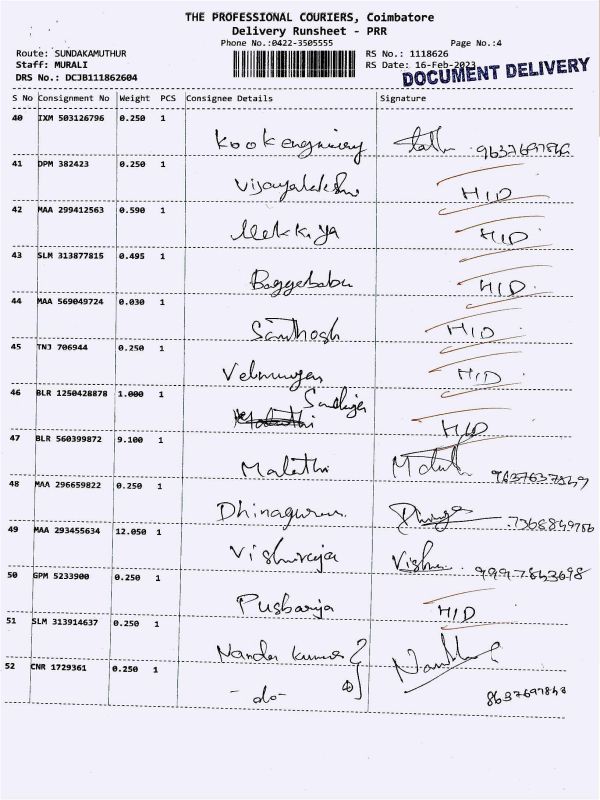 THE PROFESSIONAL COURIERS, Coimbatore
Delivery Runsheet - PRR
Phone No.:0422-3505555 Page No.:4
Route: SUNDAKAMUTHUR RS No.: 1118626
Staff: MURALI RS Date: 16-Feb-2023
DRS No.: DCJB111862604 DOCUMENT DELIVERY
S No Consignment No Weight PCS Consignee Details Signature
40 IXM 503126796 0.250 1
41 DPM 382423 0.250 1
Vijayalakshmi H/D
42 MAA 299412563 0.590 1
H/D
43 SLM 313877815 0.495 1
Baggebabu H/D
44 MAA 569049724 0.030 1
Santhosh H/D
45 TNJ 706944 0.250 1
Velmurugan H/D
46 BLR 1250428878 1.000 1
H/D
47 BLR 560399872 9.100 1
Malathi
48 MAA 296659822 0.250 1
Dhinagurun
49 MAA 293455634 12.050 1
Vishnraja Vishnu 9997863698
50 GPM 5233900 0.250 1
H/D
51 SLM 313914637 0.250 1
Nanda kumar
52 CNR 1729361 0.250 1
- do -